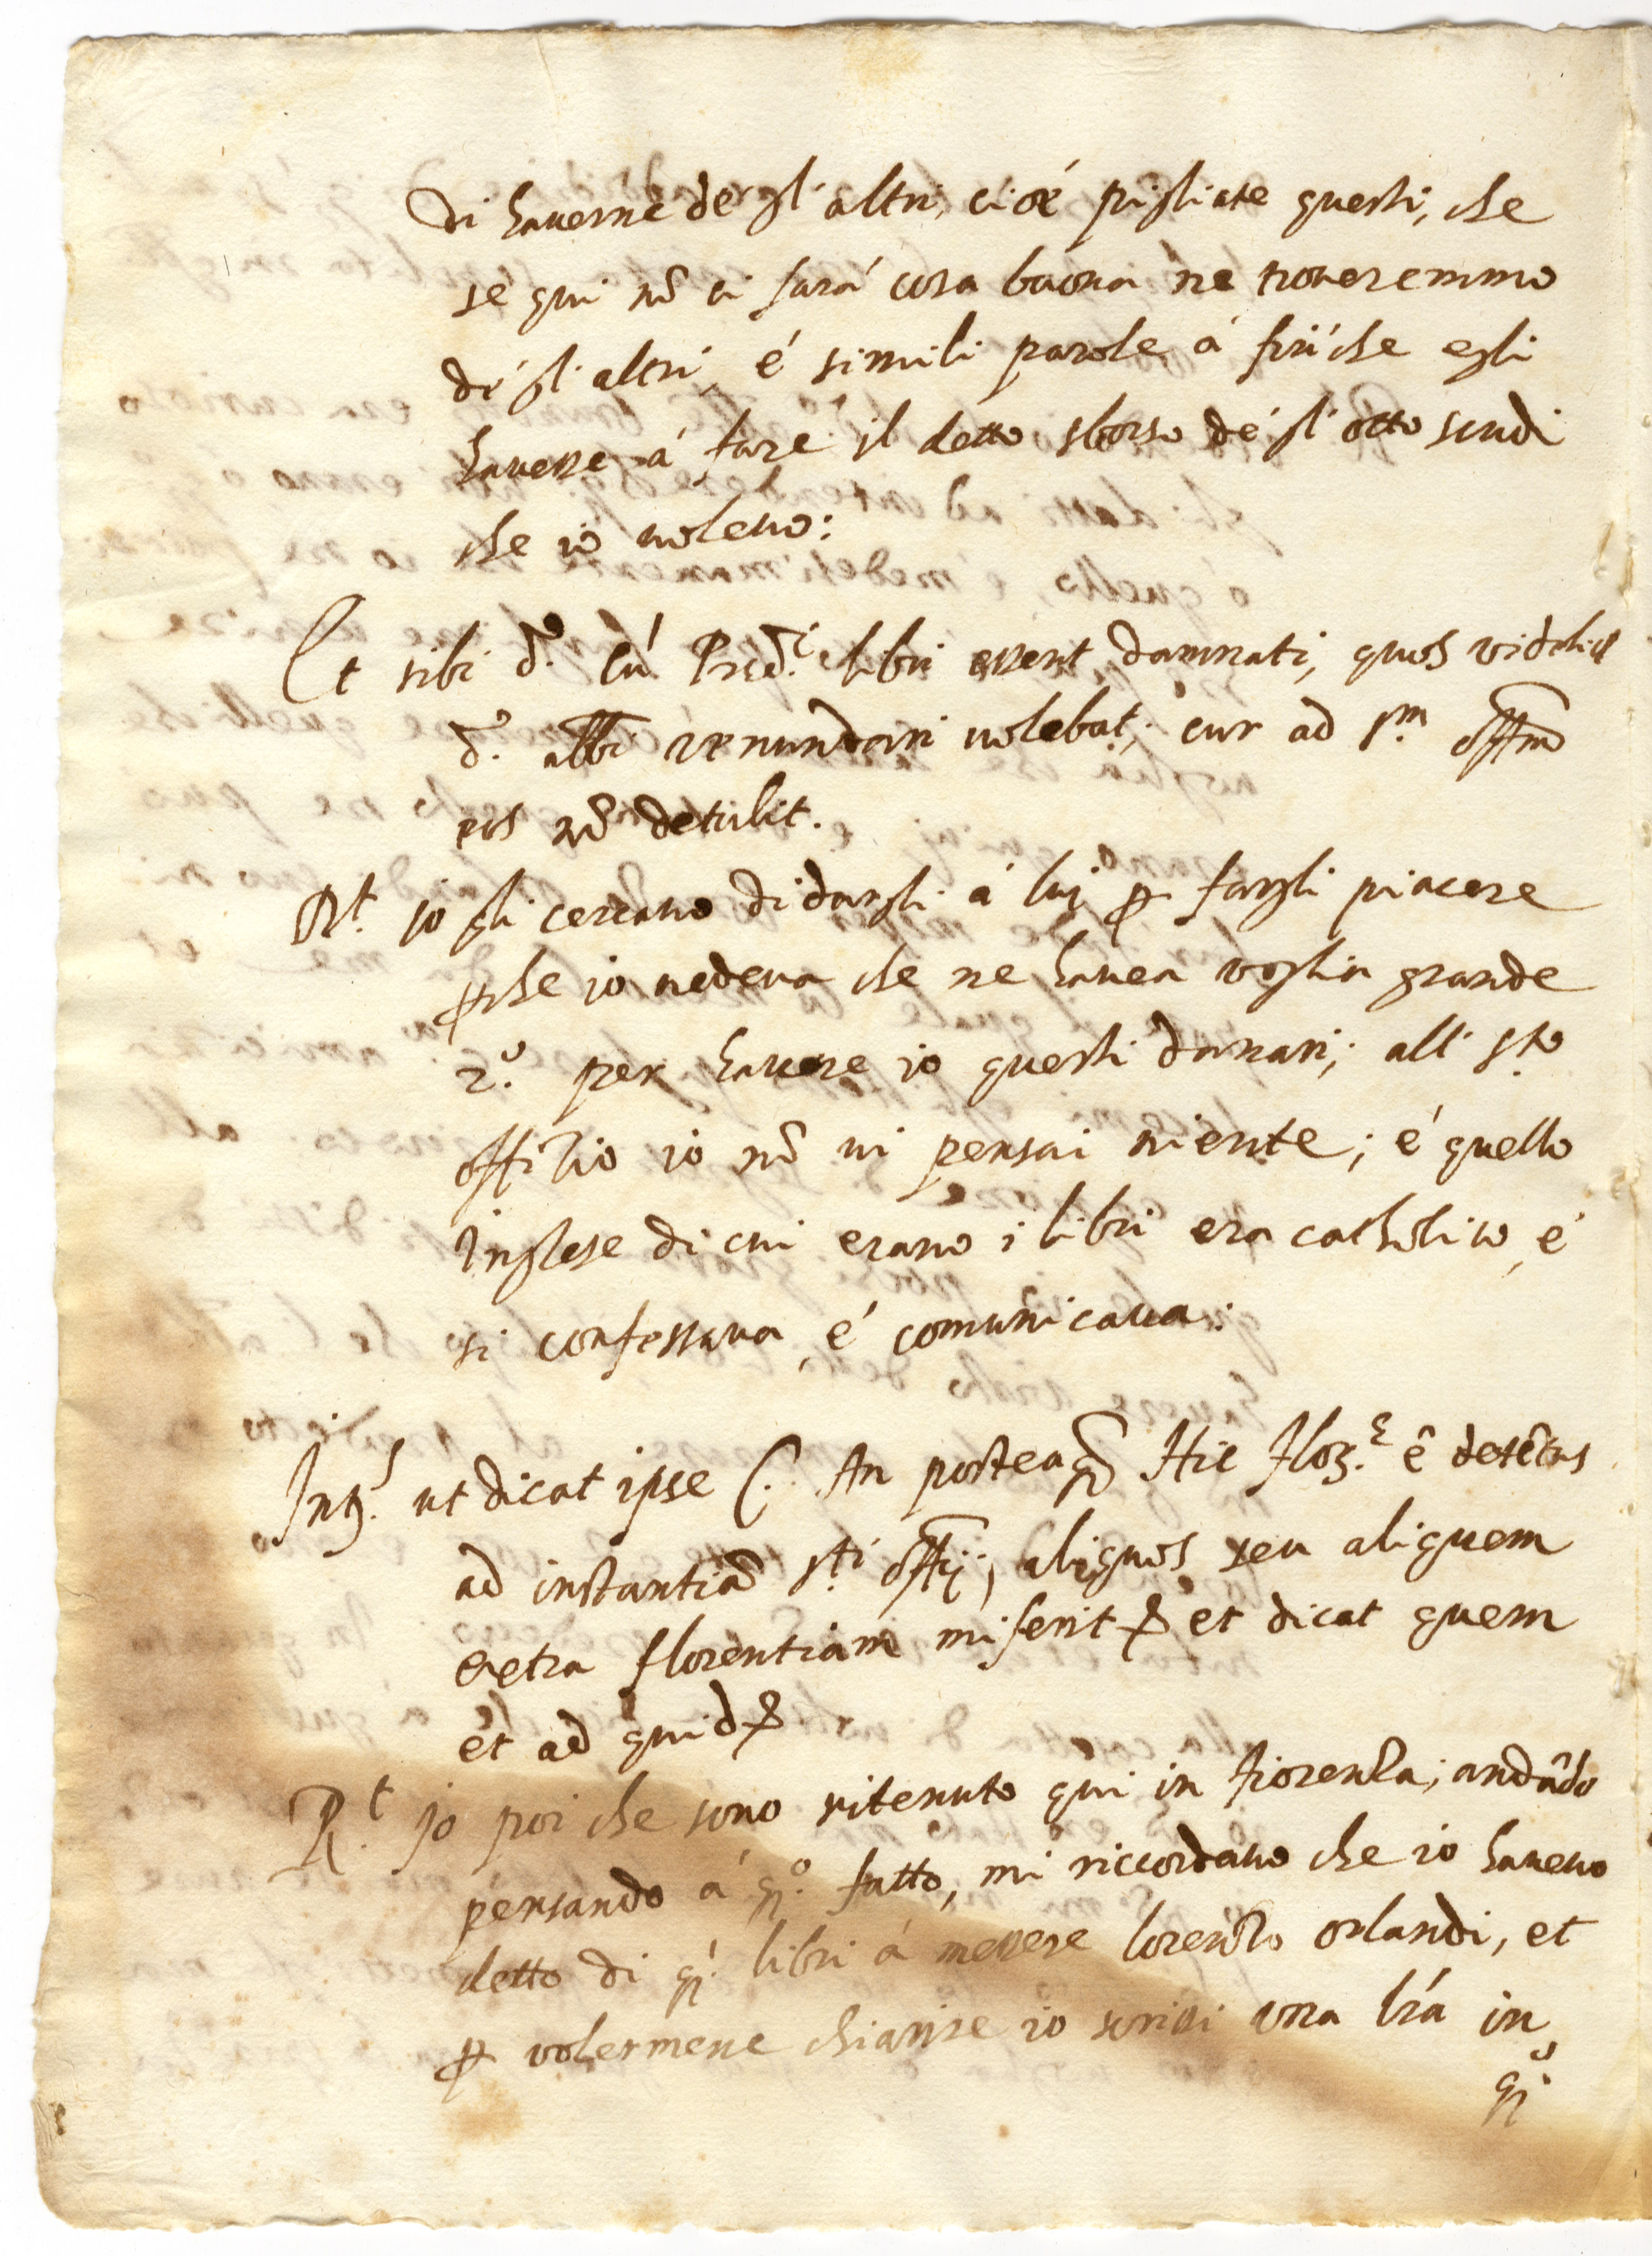 di hauerne de gl'altri, cioè pigliate questi, che
se qui nõ ci sará cosa buona ne troueremmo
de gl'altri, é simili parole á fin'che egli
hauesse á fare il detto sborso de gl'otto scudi
che io uoleuo:
Et sibi d.º cú libri essent damnati, quos
d. Abbi venundari uolebat; cur ad S.m offm
eos nõ detulit.
R.t jo gli cercauo di dargli á lui p fargli piacere
pche io uedeua che ne hauea voglia grande
2.º per hauere io questi danari; all' S.to
offitio io nõ ui pensai niente; é quello
Inglese di cui erano i libri era catholico, é
si confessaua, é comunicaua:
Int.s ut dicat ipse C. An posteaq̃ Hic Flor.e ẽ detẽtus
ad instantiã S.ti Offij, aliquos seu aliquem
extra florentiam miserit et dicat quem
et ad quid
R.t jo poi che sono ritenuto qui in fiorenza; andãdo
pensando á q.º fatto, mi riccordauo che io haueuo
detto di q.i libri á messere lorenzo orlandi, et
p volermene chiarire io scrissi vna lrã in
q.º